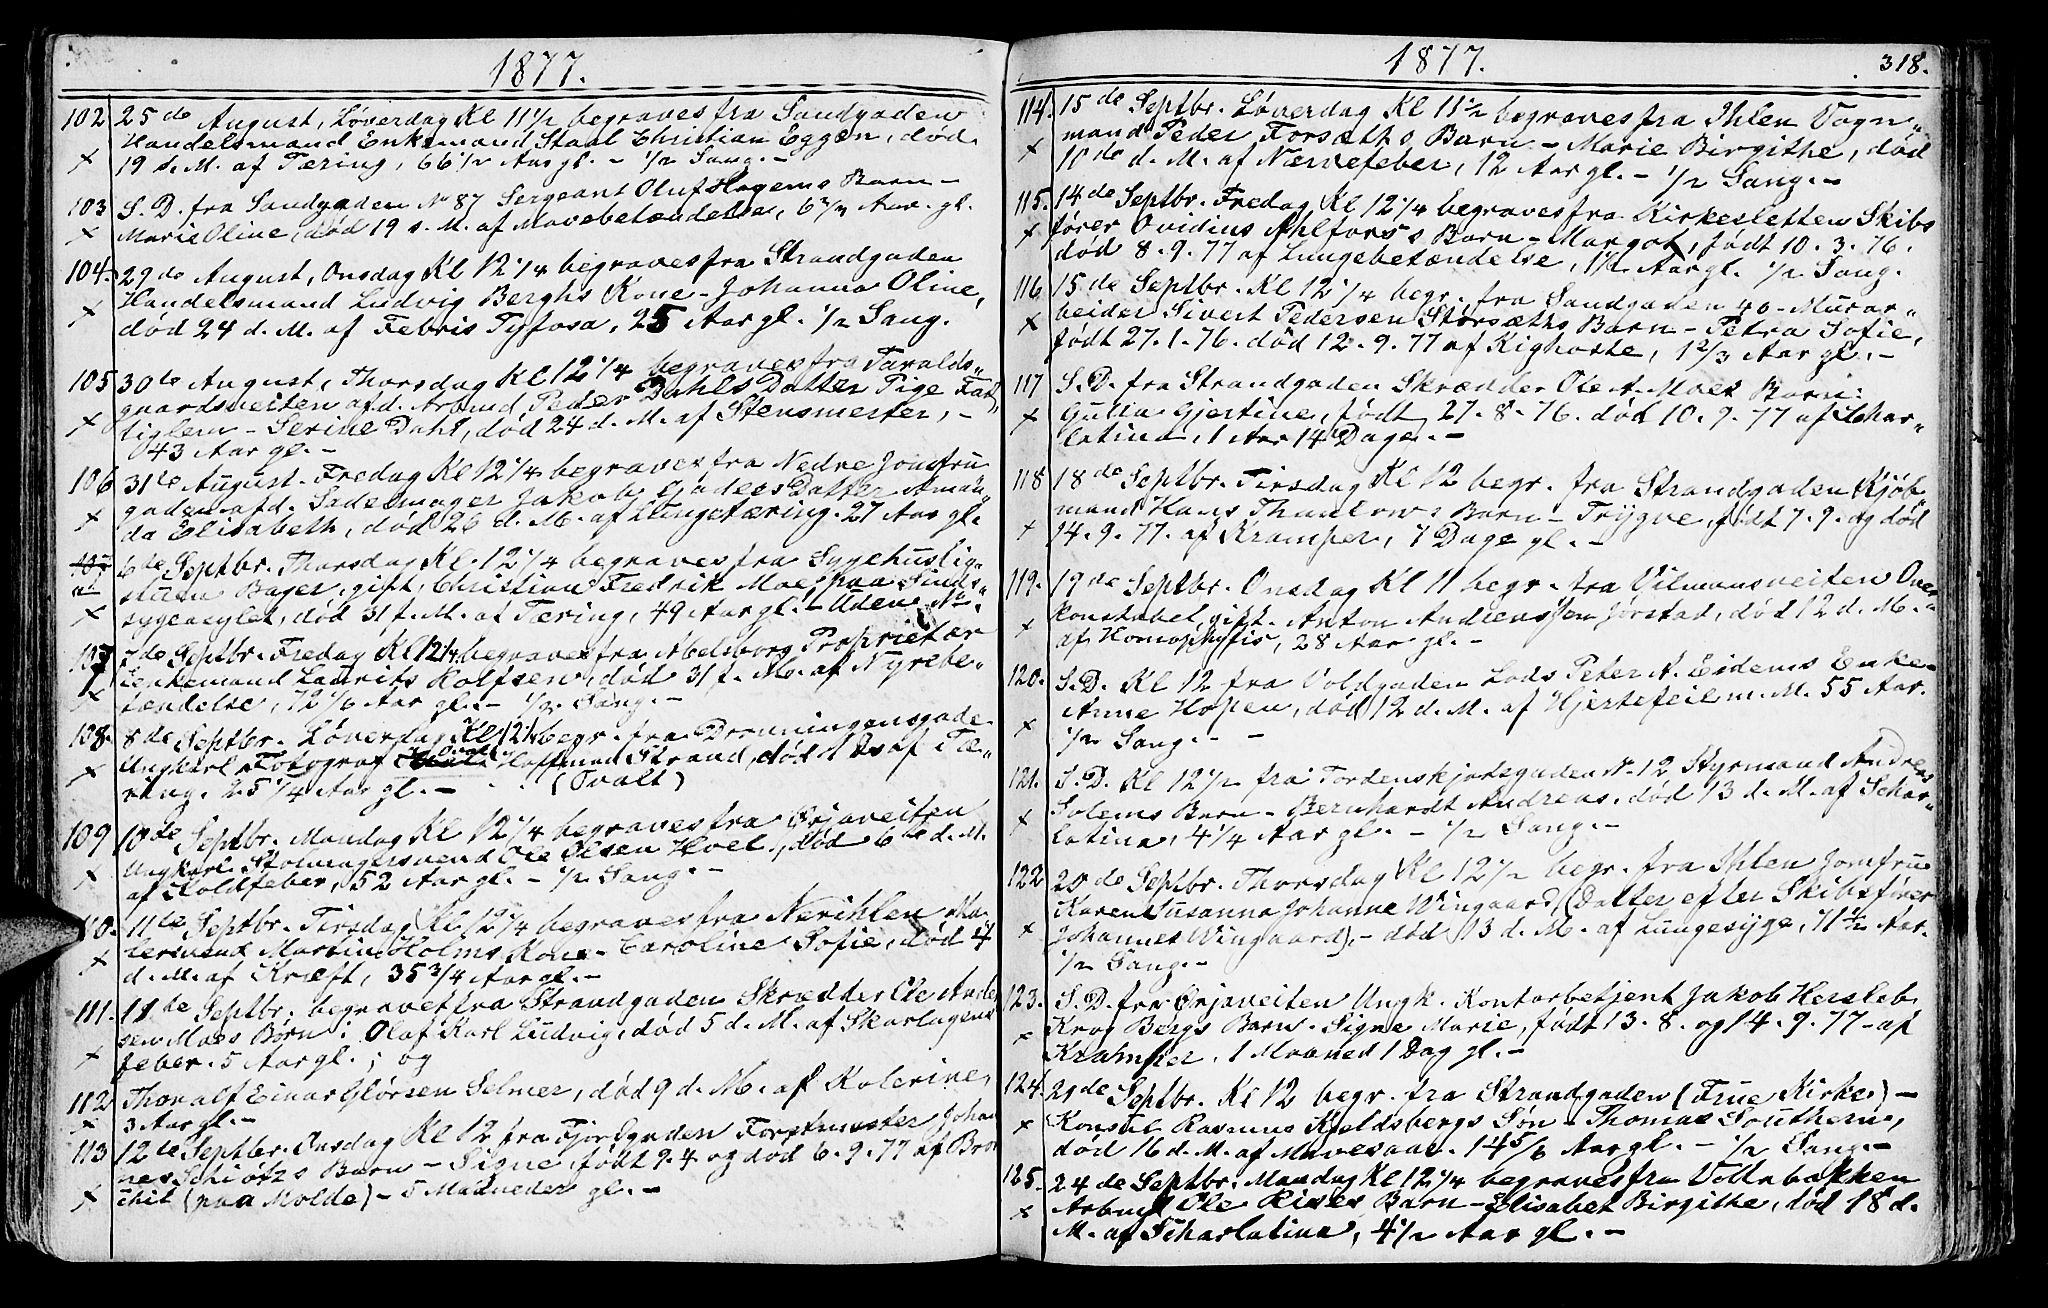 1877.
102 25de August, Løverdag Kl 11½ begraves fra Sandgaden
Handelsmand Enkemand Staal Christian Eggen, død
× 19 d. M. af Tæring, 66½ Aar gl. - ½ Sang. -
103 S. D. fra Sandgaden No 87 Sergeant Oluf Hagems Barn -
× Marie Oline, død 19 d. M. af Mavebetændelse, 6¾ Aar. gl.
104. 29de August, Onsdag Kl 12¼ begraves fra Strandgaden
× Handelsmand Ludvig Berghs Kone - Johanna Oline,
død 24 d. M. af Febris Tyfosa, 25 Aar gl. ½ Sang.
105 30te August, Thorsdag Kl 12¼ begraves fra Taralds„
gaardsveiten afd. Arbmd Peder Dahls Datter Pige Fat„
× tiglem - Serine Dahl, død 24 d. M. af Stensmerter, -
43 Aar gl. -
106 31te August. Fredag Kl 12¼ begraves fra Nedre Jomfru
gaden afd. Sadelmager Jakob Gaders Datter Aman„
× da Elisabeth, død 26 d. M. af Lungetæring. 27 Aar gl.
107 6de Septbr. Thorsdag Kl. 12¼ begraves fra Sygehuslig„
stuen Bager, gift, Christian Fredrik Moe paa Sinds„
× sygeasylet, død 31 f. M. af Tæring, 49 Aar gl. - Uden No.
107 7de Septbr. Fredag Kl 12¼ begraves fra Abelsborg Proprietær
Enkemand Laurits Rolfsen, død 31 f. M. af Nyrebe„
× tændelse, 72 1/6 Aar gl. - ½ Sang. -
108. 8de Septbr. Løverdag Kl 12¼ begr. fra Dronningensgade
Ungkarl Fotograf Hoffmed Strand, død 1 Ds af Tæ„
× ring. 25¼ Aar gl. - (Tvalt)
109 10de Septbr. Mandag Kl 12¼ begraves fra Ørjaveiten
Ungkarl Stolmagersvend Ole Olsen Hoel, død 6te d. M.
× af Koldfeber, 52 Aar gl. - ½ Sang. -
110. 11te Septbr. Tirsdag Kl 12¼ begraves fra Nerihlen Ma„
lersvend Martin Holms Kone - Caroline Sofie, død 4
× d. M. af Kræft, 35¾ Aar gl. -
111. 11te Septbr. begravet fra Strandgaden Skrædder Ole Ander
sen Moes Børn: Olaf Karl Ludvig, død 5 d. M. af Skarlagens
× feber. 5 Aar gl.; og
112 Thoralf Einar Glørsen Selmer, død 9 d. M. af Kolerine,
× 3 Aar gl. -
113 12te Septbr. Onsdag Kl 12 fra Fjordgaden Forstmester Johan
nes Schiøtzs Barn - Signe, født 9. 4 og død 6. 9. 77 af Bron
× chit (paa Molde) - 5 Maaneder gl. -
1877. 318.
114. 15de Septbr. Løverdag Kl 11½ begraves fra Ihlen Vogn„
mand Peder Forsæths Barn - Marie Birgithe, død
× 10de d. M. af Nervefeber, 12 Aar gl. - ½ Sang. -
115. 14de Septbr. Fredag Kl 12¼ begraves fra Kirkesletten Skibs
× fører Ovidius Ahlforss Barn - Margot, født 10. 3. 76.
død 8. 9. 77 af Lungebetændelse, 1½ Aar gl. ½ Sang.
116 15de Septbr. Kl 12¼ begr. fra Sandgaden 40 - Murar„
× beider Sivert Pedersen Størsæths Barn - Petra Sofie,
født 27. 1. 76. død 12. 9. 77 af Kighoste, 1⅔ Aar gl. -
117 S. D. fra Strandgaden Skrædder Ole A. Moes Barn:
× Gulla Gjertine, født 27. 8. 76. død 10. 9. 77 af Schar„
latina, 1 Aar 14 Dage. -
118 18de Septbr. Tirsdag Kl 12 begr. fra Strandgaden Kjøb„
mand Hans Thaulows Barn - Trygve, født 7. 9. og død
× 14. 9. 77. af Kramper, 7 Dage gl. -
119. 19de Septbr. Onsdag Kl 11 begr. fra Vilmansveiten Over„
× konstabel, gift. Anton Andreassen Jørstad, død 12 d. M.
af Homophytis, 28 Aar gl. -
120. S. D. Kl 12 fra Voldgaden Lods Peter A. Eidems Enke -
Anne Hopen, død 12 d. M. af Hjertefeil m. M. 55 Aar.
× ½ Sang. -
121. S. D. Kl 12½ fra Tordenskjoldsgaden No 12 Styrmand Andreas
× Solems Barn - Bernhardt Andreas, død 13 d. M. af Schar„
latina, 4¼ Aar gl. - ½ Sang. -
122 20de Septbr. Thorsdag Kl 12½ begr. fra Ihlen Jomfru
Karen Susanna Johanne Wingaard, (Datter efter Skibsfører
× Johannes Wingaard), - død 13 d. M. af Lungesyge, 71½ Aar.
½ Sang. -
123. S. D. fra Ørjaveiten Ungk. Kontorbetjent Jakob Hersleb
× Krog Bergs Barn. Signe Marie, født 13. 8. og 14. 9. 77 - af
Kramper. 1 Maaned 1 Dag gl. -
124. 21de Septbr. Kl 12 begr. fra Strandgaden (Frue Kirke) -
× Konsul Rasmus Kjeldsbergs Søn - Thomas Southern,
død 16 d. M. af Mavesaar. 14 5/6 Aar gl. - ½ Sang. -
125. 24de Septbr. Mandag Kl 12¼ begraves fra Vollabakken
× Arbmd Ole Rises Barn - Elisabet Birgithe, død 18 d.
M. af Scharlatina, 4½ Aar gl. -